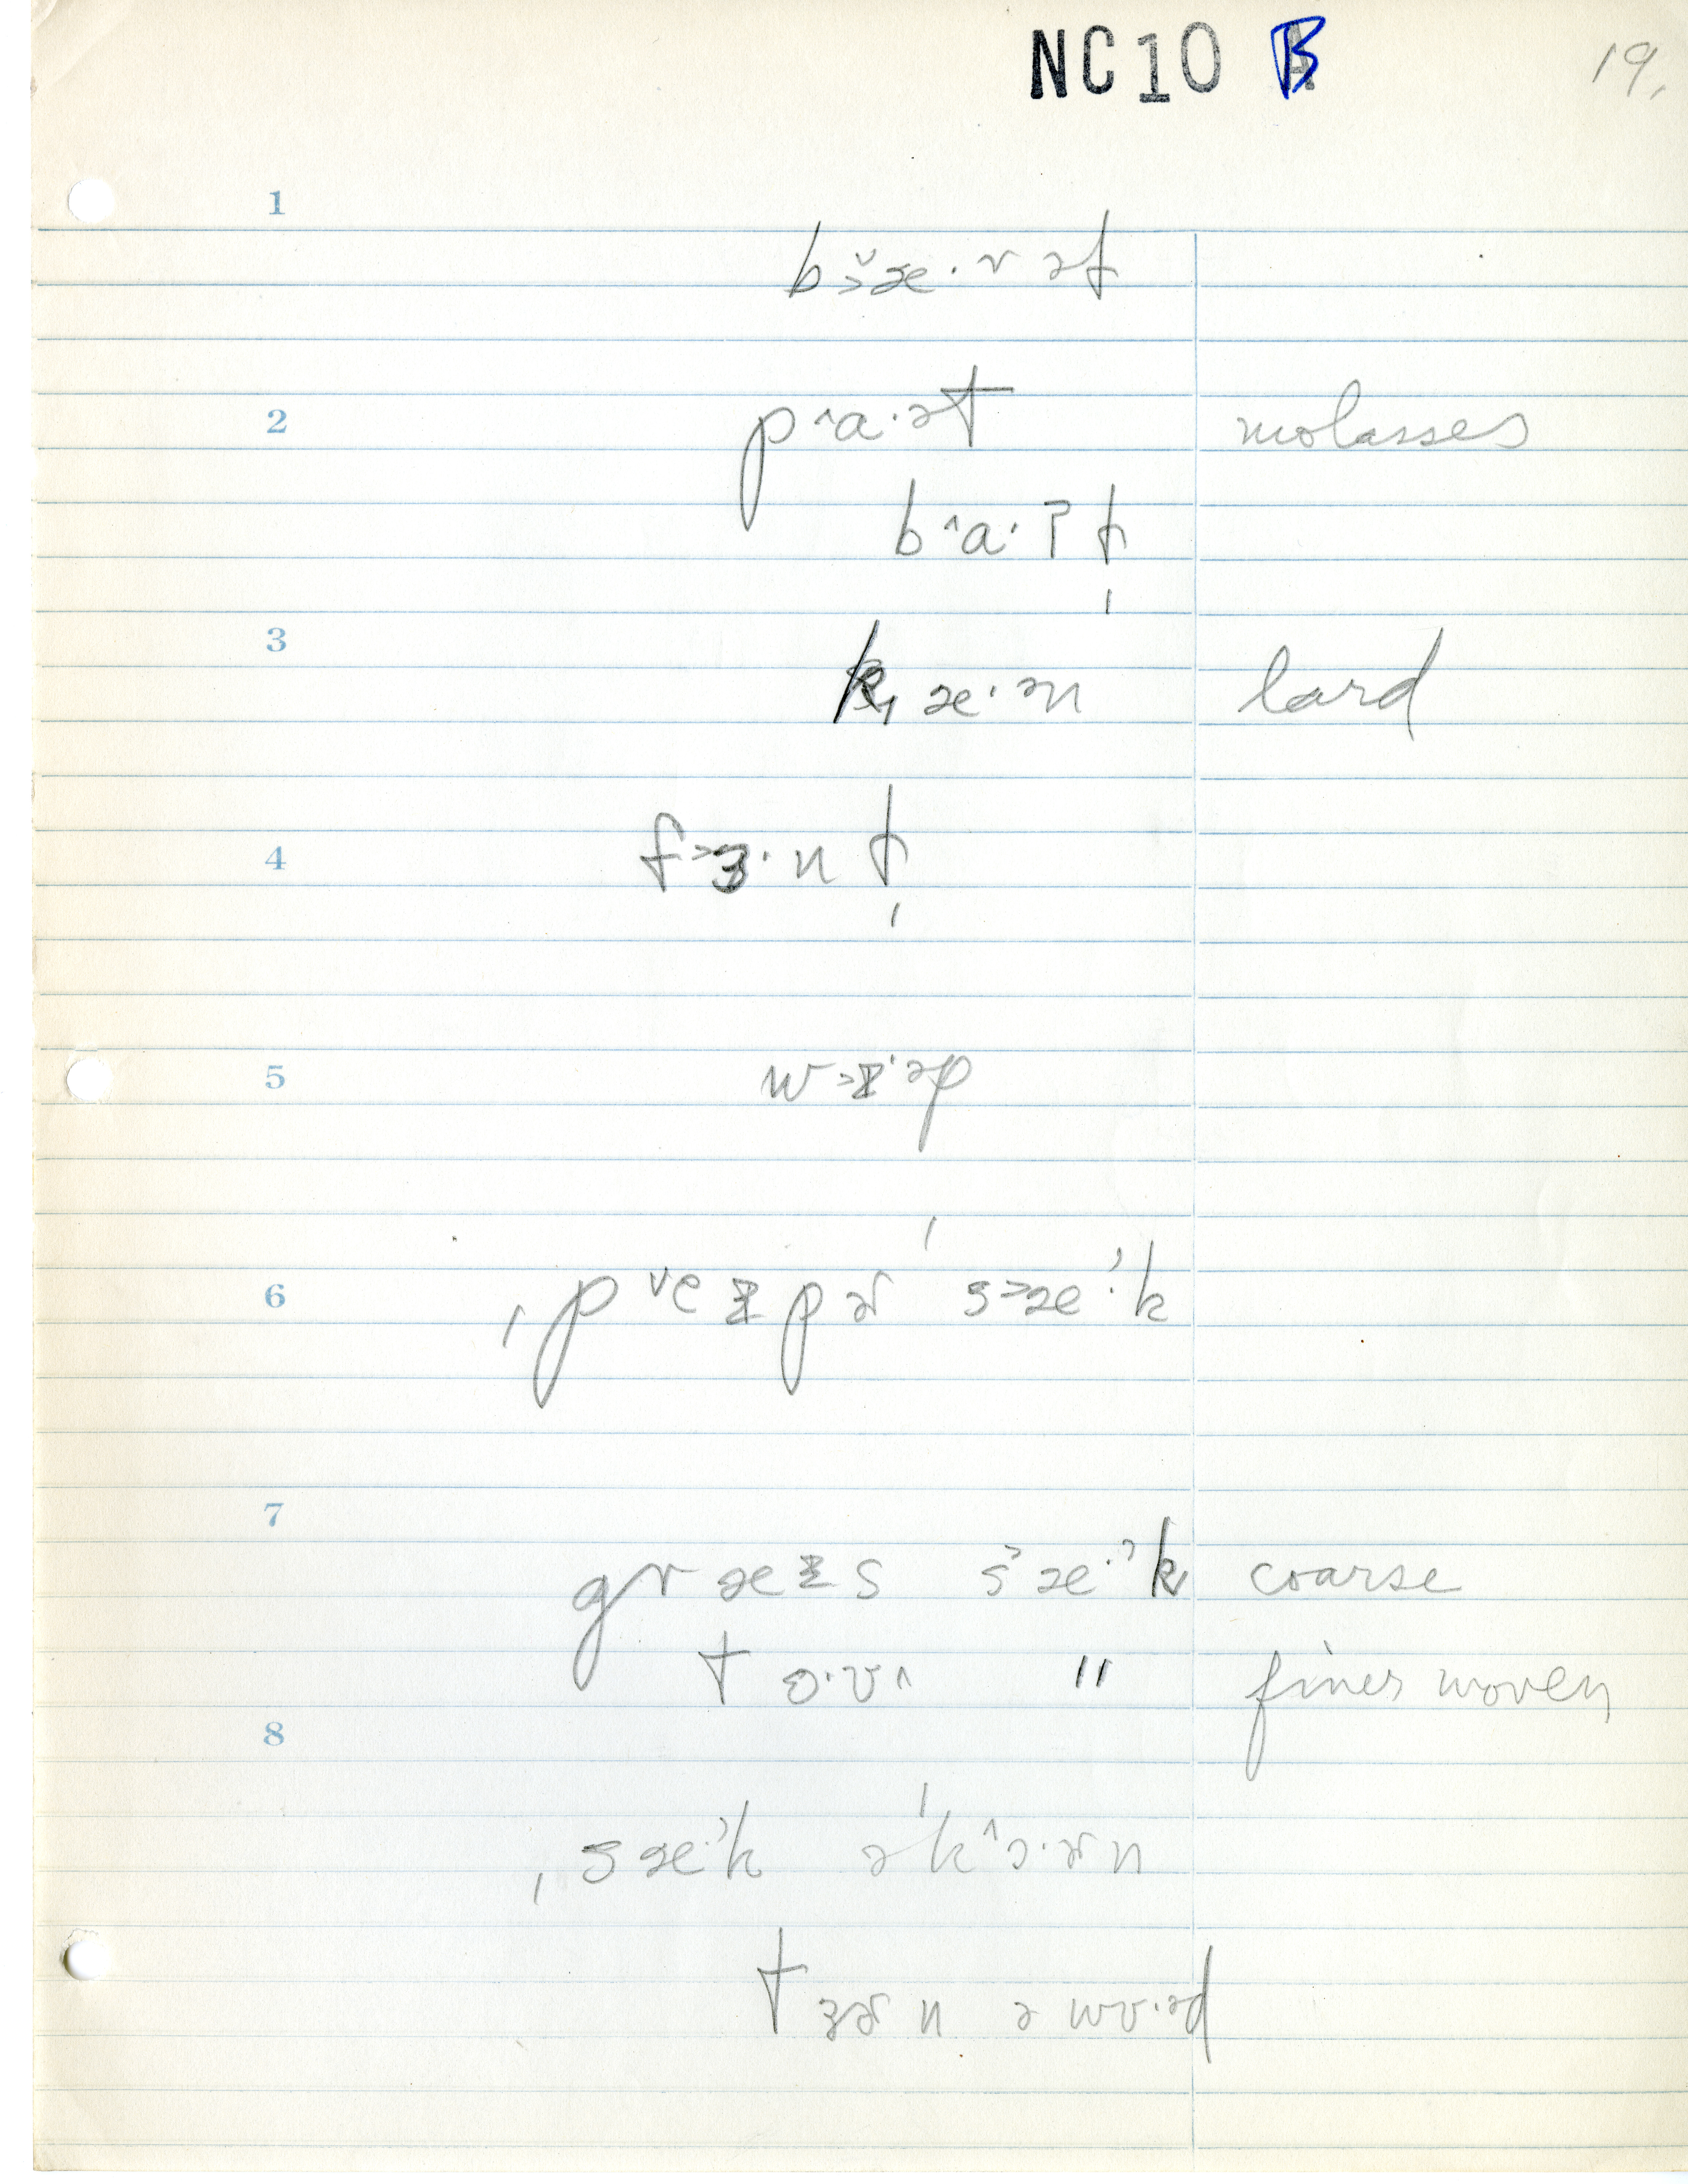 NC10 B 19.
1
b᷾æ·rəɫ
2 pˆa·ət molasses
bˆa·ɪ̯ t̬
3 k̟æ·ən lard
4 f˃ɜ·n ɫ
5 w˃ɪ·əp
6 ˌpˇeɪpɚ ˈs˃æ·ᵊk
7 græɪs s˃æ·ᵊk̟ coarse
toˑʊ^ " finer woven
8
ˌsæ·ᵊk əˈkˆɔ·ɚn
tɜɚn ə wʊ·əd